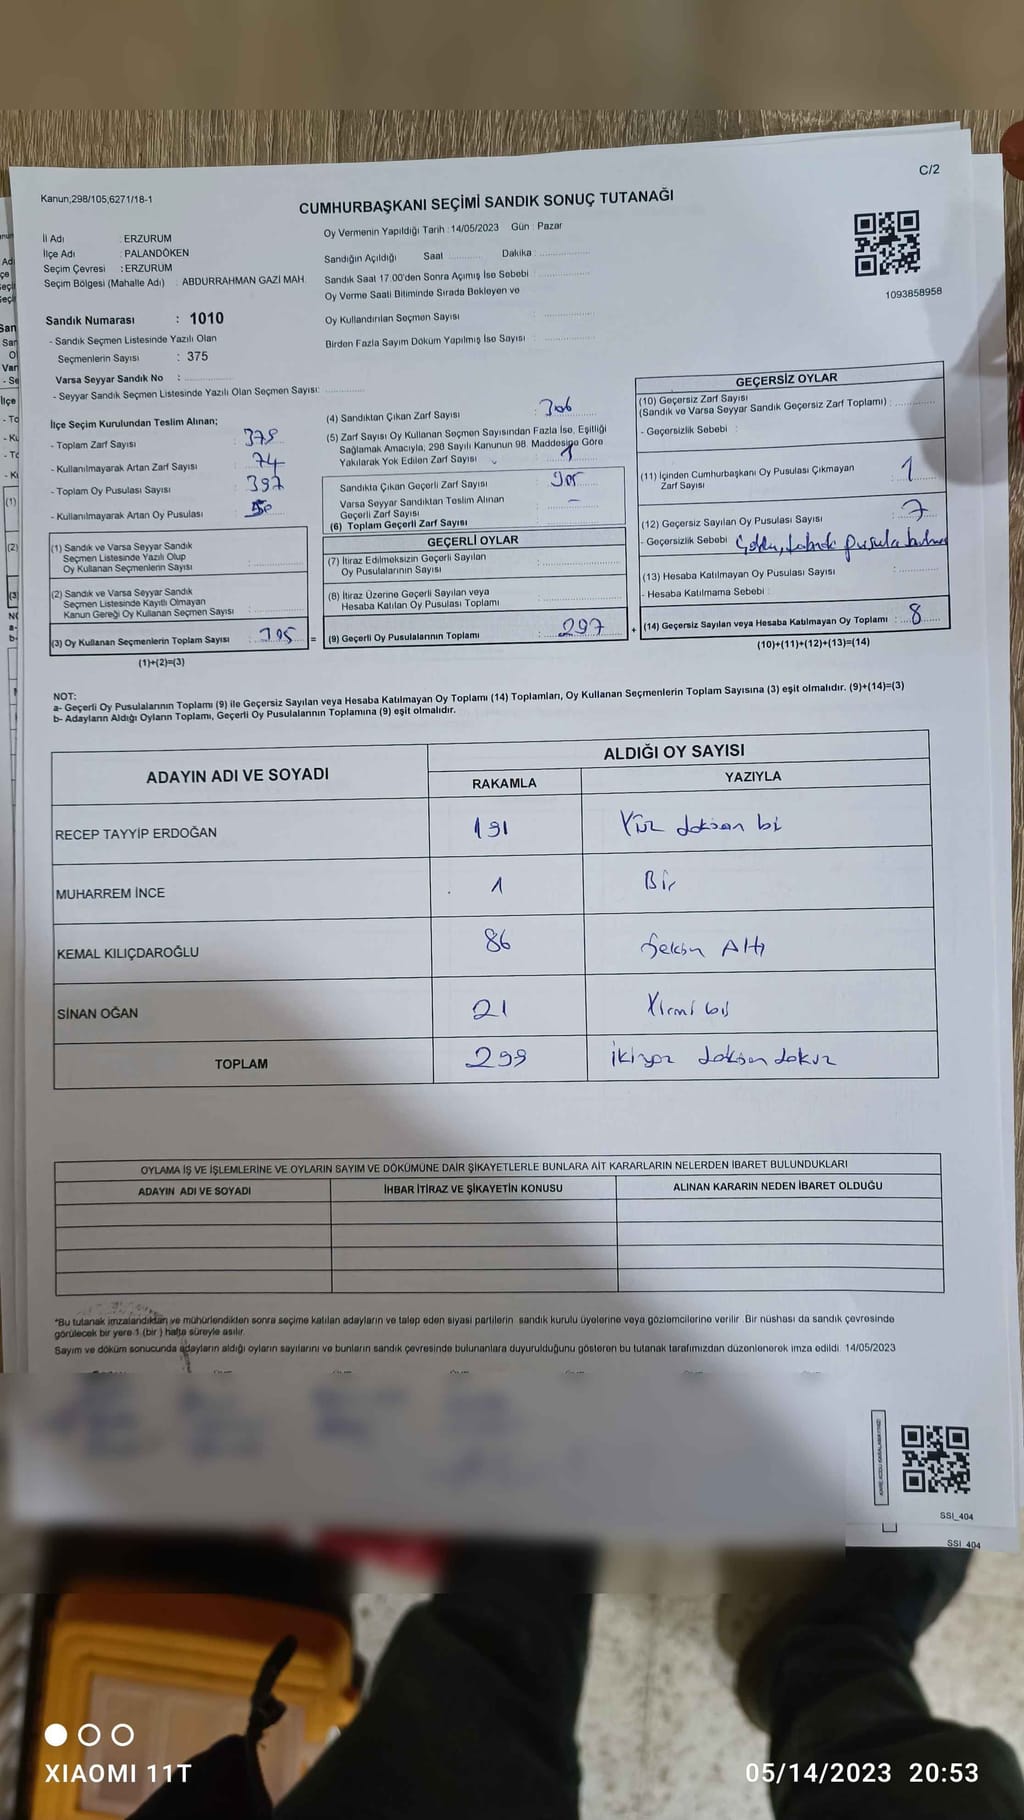 C/2
Kanun;298/105;6271/18-1
CUMHURBAŞKANI SEÇİMİ SANDIK SONUÇ TUTANAĞI
İl Adı : ERZURUM
İlçe Adı : PALANDÖKEN
Seçim Çevresi : ERZURUM
Seçim Bölgesi (Mahalle Adı) : ABDURRAHMAN GAZİ MAH.
Sandık Numarası : 1010
- Sandık Seçmen Listesinde Yazılı Olan
Seçmenlerin Sayısı : 375
Varsa Seyyar Sandık No :
- Seyyar Sandık Seçmen Listesinde Yazılı Olan Seçmen Sayısı:
Oy Vermenin Yapıldığı Tarih : 14/05/2023 Gün : Pazar
Sandığın Açıldığı Saat Dakika
Sandık Saat 17.00'den Sonra Açılmış İse Sebebi
Oy Verme Saati Bitiminde Sırada Bekleyen ve
Oy Kullandırılan Seçmen Sayısı
Birden Fazla Sayım Döküm Yapılmış İse Sayısı
1093858958
İlçe Seçim Kurulundan Teslim Alınan;
- Toplam Zarf Sayısı : 378
- Kullanılmayarak Artan Zarf Sayısı : 74
- Toplam Oy Pusulası Sayısı : 397
- Kullanılmayarak Artan Oy Pusulası :
(1) Sandık ve Varsa Seyyar Sandık
Seçmen Listesinde Yazılı Olup
Oy Kullanan Seçmenlerin Sayısı
(2) Sandık ve Varsa Seyyar Sandık
Seçmen Listesinde Kayıtlı Olmayan
Kanun Gereği Oy Kullanan Seçmen Sayısı
(3) Oy Kullanan Seçmenlerin Toplam Sayısı : 305 =
(1)+(2)=(3)
(4) Sandıktan Çıkan Zarf Sayısı : 306
(5) Zarf Sayısı Oy Kullanan Seçmen Sayısından Fazla İse, Eşitliği
Sağlamak Amacıyla, 298 Sayılı Kanunun 98. Maddesine Göre
Yakılarak Yok Edilen Zarf Sayısı 1
Sandıkta Çıkan Geçerli Zarf Sayısı : 305
Varsa Seyyar Sandıktan Teslim Alınan
Geçerli Zarf Sayısı –
(6) Toplam Geçerli Zarf Sayısı
GEÇERLİ OYLAR
(7) İtiraz Edilmeksizin Geçerli Sayılan
Oy Pusulalarının Sayısı
(8) İtiraz Üzerine Geçerli Sayılan veya
Hesaba Katılan Oy Pusulası Toplamı
(9) Geçerli Oy Pusulalarının Toplamı : 297 +
GEÇERSİZ OYLAR
(10) Geçersiz Zarf Sayısı
(Sandık ve Varsa Seyyar Sandık Geçersiz Zarf Toplamı) :
- Geçersizlik Sebebi :
(11) İçinden Cumhurbaşkanı Oy Pusulası Çıkmayan
Zarf Sayısı 1
(12) Geçersiz Sayılan Oy Pusulası Sayısı : 7
- Geçersizlik Sebebi pusula
(13) Hesaba Katılmayan Oy Pusulası Sayısı
- Hesaba Katılmama Sebebi
(14) Geçersiz Sayılan veya Hesaba Katılmayan Oy Toplamı : 8
(10)+(11)+(12)+(13)=(14)
NOT:
a- Geçerli Oy Pusulalarının Toplamı (9) ile Geçersiz Sayılan veya Hesaba Katılmayan Oy Toplamı (14) Toplamları, Oy Kullanan Seçmenlerin Toplam Sayısına (3) eşit olmalıdır. (9)+(14)=(3)
b- Adayların Aldığı Oyların Toplamı, Geçerli Oy Pusulalarının Toplamına (9) eşit olmalıdır.
ADAYIN ADI VE SOYADI ALDIĞI OY SAYISI
RAKAMLA YAZIYLA
RECEP TAYYİP ERDOĞAN 191 Yüz doksan bi
MUHARREM İNCE 1 Bir
KEMAL KILIÇDAROĞLU 86 Seksen Altı
SİNAN OĞAN 21 Yirmi bir
TOPLAM 299 ikiyüz doksan dokuz
OYLAMA İŞ VE İŞLEMLERİNE VE OYLARIN SAYIM VE DÖKÜMÜNE DAİR ŞİKAYETLERLE BUNLARA AİT KARARLARIN NELERDEN İBARET BULUNDUKLARI
ADAYIN ADI VE SOYADI İHBAR İTİRAZ VE ŞİKAYETİN KONUSU ALINAN KARARIN NEDEN İBARET OLDUĞU
*Bu tutanak imzalandıktan ve mühürlendikten sonra seçime katılan adayların ve talep eden siyasi partilerin sandık kurulu üyelerine veya gözlemcilerine verilir. Bir nüshası da sandık çevresinde
görülecek bir yere 1 (bir ) hafta süreyle asılır.
Sayım ve döküm sonucunda adayların aldığı oyların sayılarını ve bunların sandık çevresinde bulunanlara duyurulduğunu gösteren bu tutanak tarafımızdan düzenlenerek imza edildi. 14/05/2023
SSI_404
SSI_404
XIAOMI 11T
05/14/2023 20:53